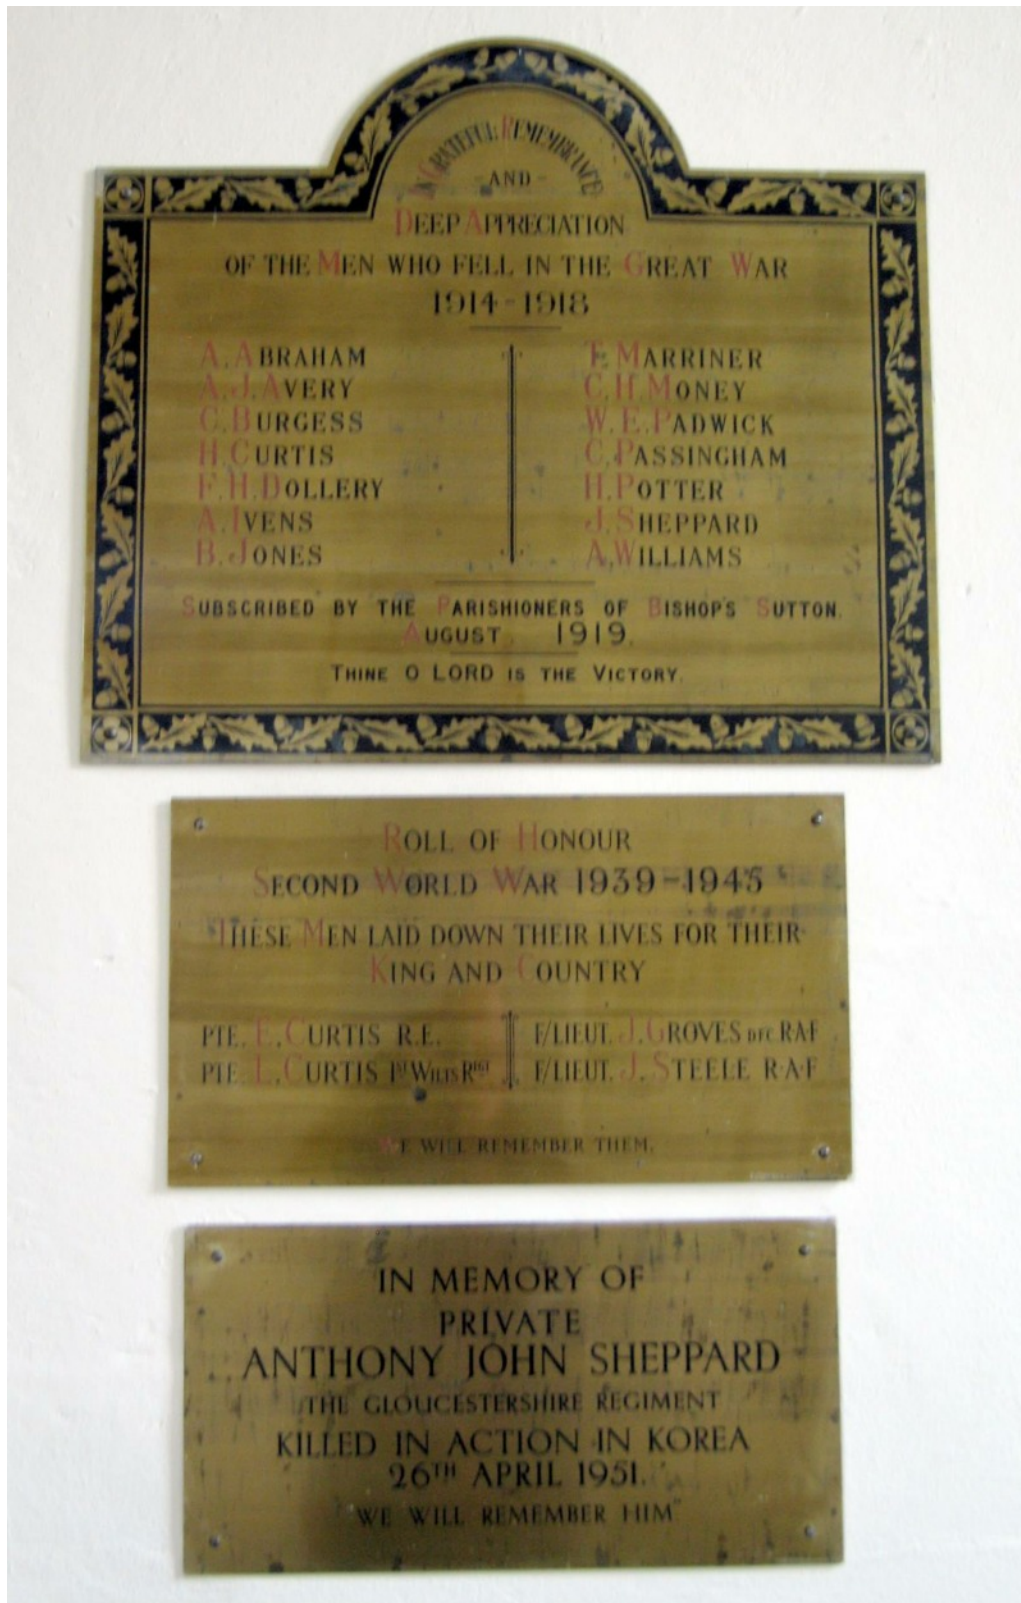 In Grateful Remembrance
- AND -
DEEP APPRECIATION
OF THE MEN WHO FELL IN THE GREAT WAR
1914-1918
A. ABRAHAM
A. J. AVERY
C. BURGESS
H. CURTIS
F. H. DOLLERY
A. IVENS
B. JONES
T. MARRINER
C. H. MONEY
W. E. PADWICK
C. PASSINGHAM
H. POTTER
J. SHEPPARD
A. WILLIAMS
SUBSCRIBED BY THE PARISHIONERS OF BISHOP'S SUTTON.
AUGUST 1919.
THINE O LORD IS THE VICTORY.
ROLL OF HONOUR
SECOND WORLD WAR 1939-1945
THESE MEN LAID DOWN THEIR LIVES FOR THEIR
KING AND COUNTRY
PTE. E. CURTIS R.E.
PTE. L. CURTIS 1ST WILTS REGT
F/LIEUT. J. GROVES DFC R·A·F
F/LIEUT. J. STEELE R·A·F
WE WILL REMEMBER THEM.
IN MEMORY OF
PRIVATE
ANTHONY JOHN SHEPPARD
THE GLOUCESTERSHIRE REGIMENT
KILLED IN ACTION IN KOREA
26TH APRIL 1951.
"WE WILL REMEMBER HIM"